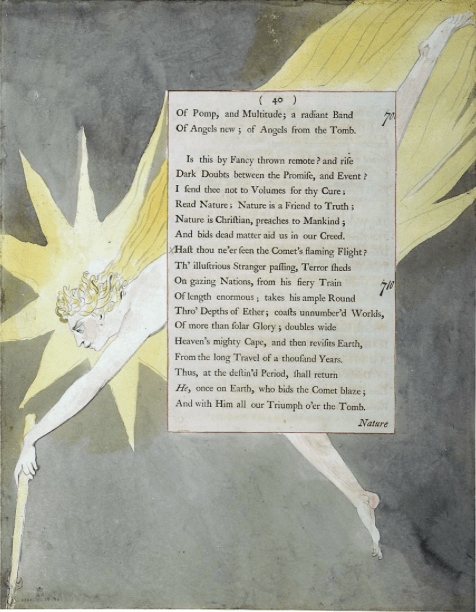 ( 40 )
Of Pomp, and Multitude; a radiant Band
Of Angels new; of Angels from the Tomb.
Is this by Fancy thrown remote? and riſe
Dark Doubts between the Promiſe, and Event?
I ſend thee not to Volumes for thy Cure;
Read Nature; Nature is a Friend to Truth;
Nature is Chriſtian, preaches to Mankind;
And bids dead matter aid us in our Creed.
Haſt thou ne'er ſeen the Comet's flaming Flight?
Th' illuſtrious Stranger paſſing, Terror ſheds
On gazing Nations, from his fiery Train
Of length enormous; takes his ample Round
Thro' Depths of Ether; coaſts unnumber'd Worlds,
Of more than ſolar Glory; doubles wide
Heaven's mighty Cape, and then reviſits Earth,
From the long Travel of a thouſand Years.
Thus, at the deſtin'd Period, ſhall return
He, once on Earth, who bids the Comet blaze;
And with Him all our Triumph o'er the Tomb.
Nature